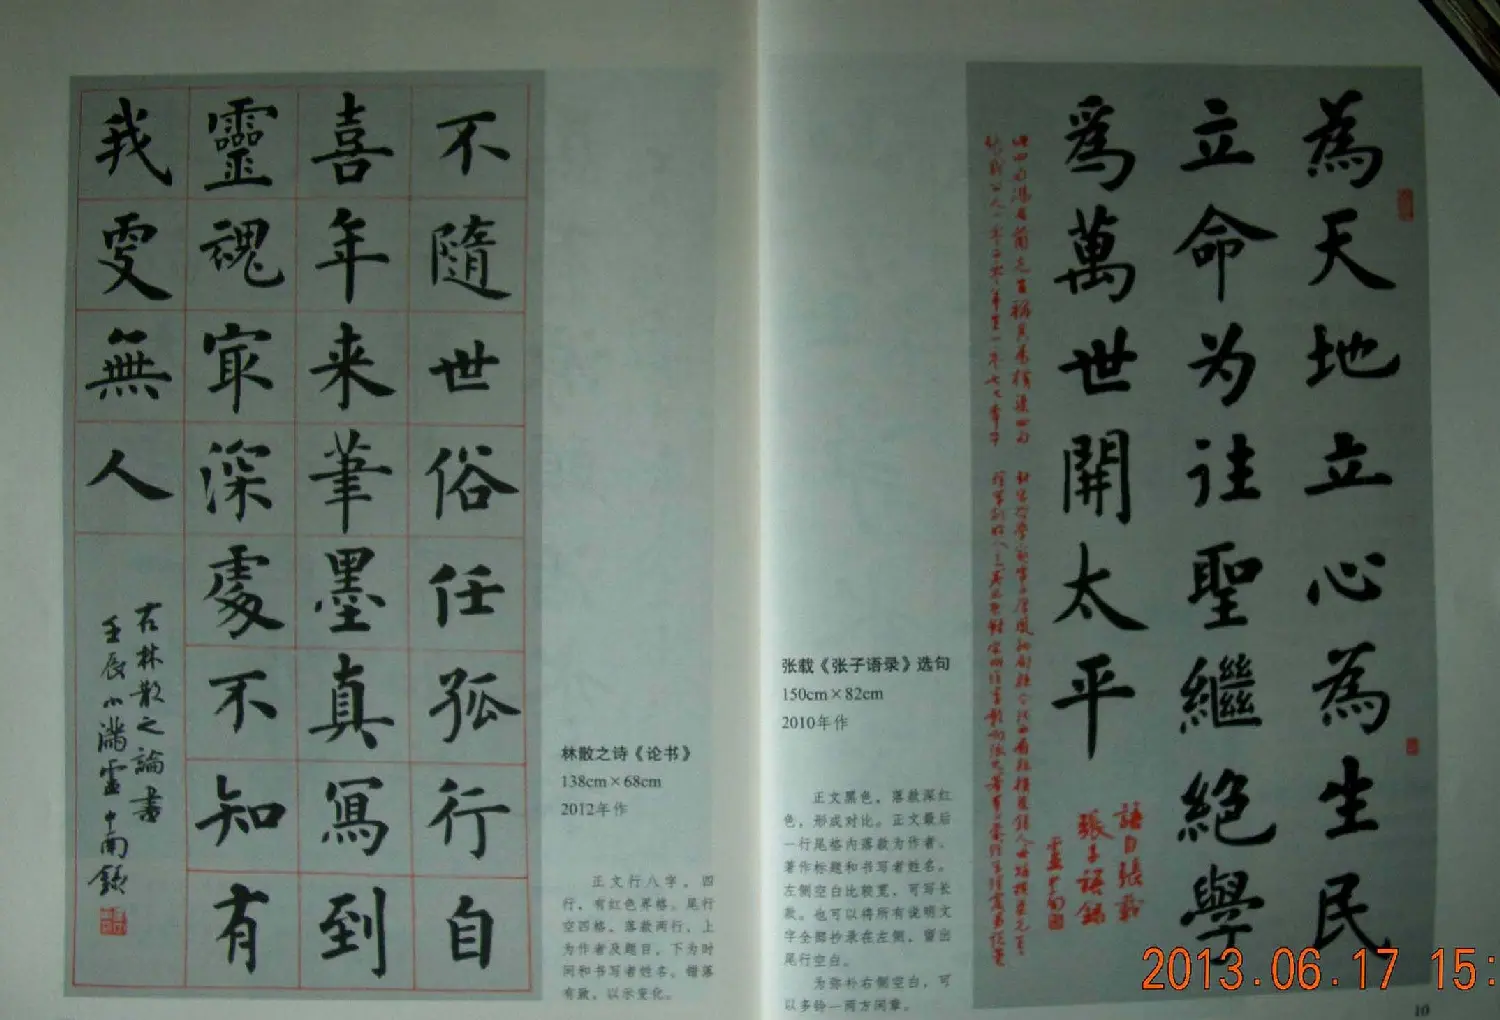 不隨世俗任孤行自
喜年来筆墨真寫到
靈魂冣深處不知有
我更無人
右林散之論書
壬辰小滿盧中南錄
林散之诗《论书》
138cm×68cm
2012年作
正文行八字，四
行，有红色界格。尾行
空四格，落款两行，上
为作者及题目，下为时
间和书写者姓名。错落
有致，以示变化。
為天地立心為生民
立命为往聖繼絕學
爲萬世開太平
語自張載
張子語錄
盧中南
张载《张子语录》选句
150cm×82cm
2010年作
正文黑色，落款深红
色，形成对比。正文最后
一行尾格内落款为作者、
著作标题和书写者姓名。
左侧空白比较宽，可写长
款。也可以将所有说明文
字全部抄录在左侧，留出
尾行空白。
为弥补右侧空白，可
以多钤一两方闲章。
10
2013.06.17 15: